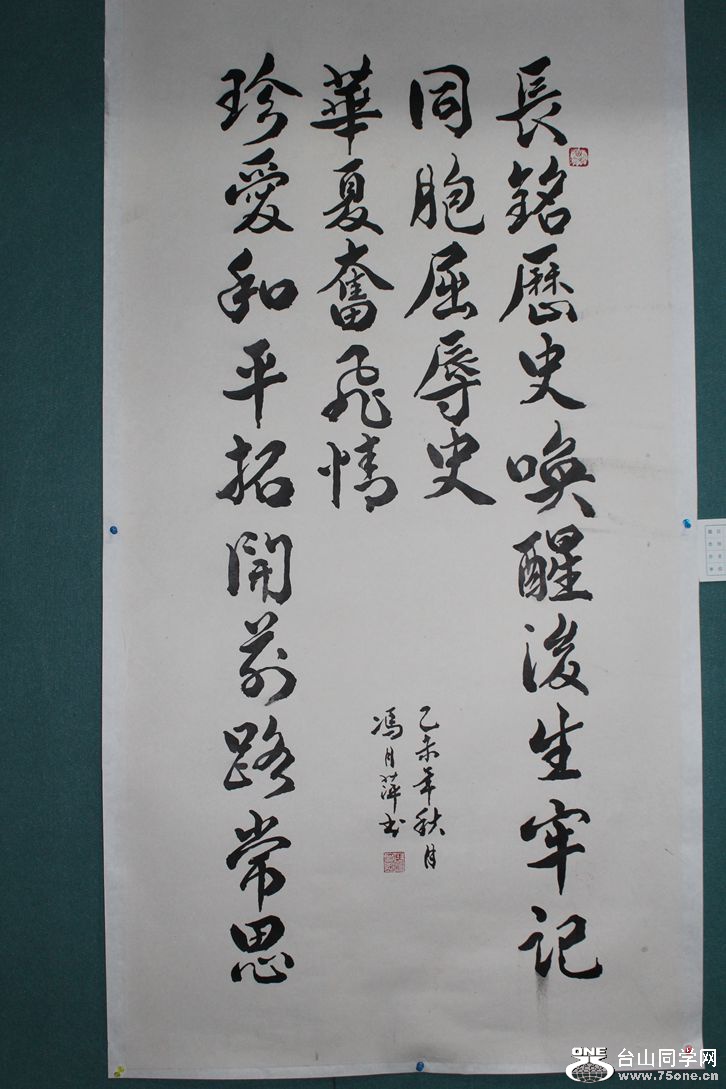 長銘歷史喚醒後生牢記
同胞屈辱史
珍愛和平拓開前路常思
華夏奮飛情
乙未年秋月
馮月萍书
ONE 台山同学网
www.75one.cn